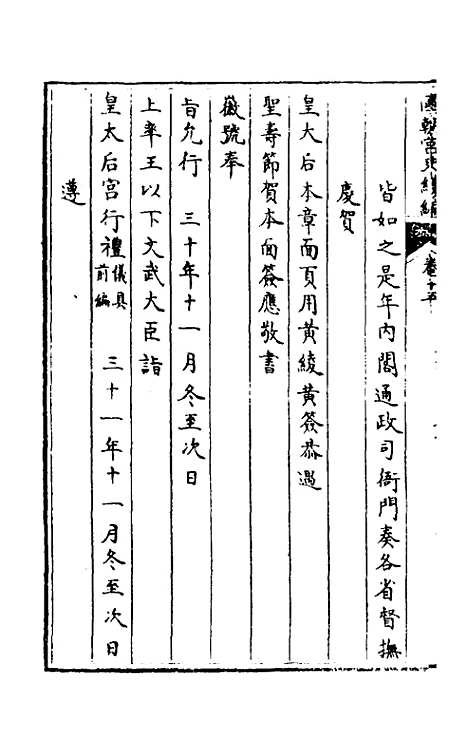 國朝宮史續編
卷十五
皆如之是年内閣通政司衙門奏各省督撫
慶賀
皇太后本章面頁用黃綾黃簽恭遇
聖壽節賀本面簽應敬書
徽號奉
旨允行 三十年十一月冬至次日
上率王以下文武大臣詣
皇太后宮行禮儀具前編 三十一年十一月冬至次日
遵